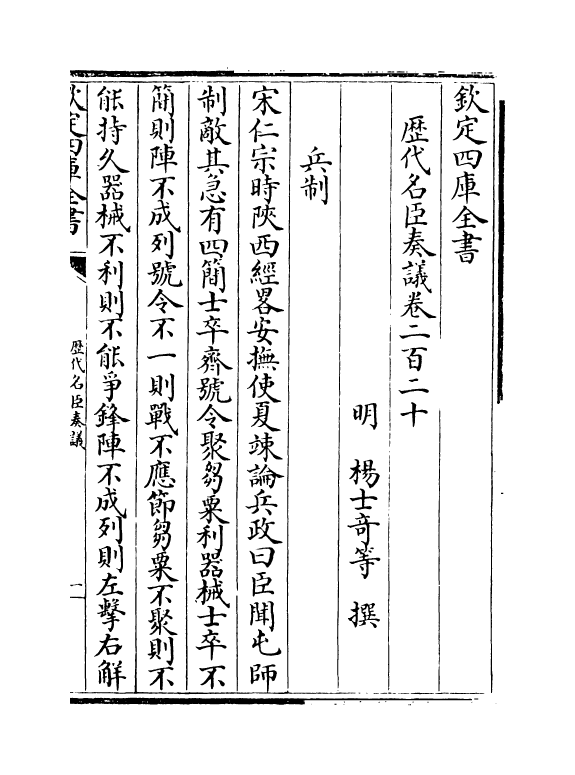 欽定四庫全書
歴代名臣奏議卷二百二十
明　楊士竒等　撰
兵制
宋仁宗時陝西經畧安撫使夏竦論兵政曰臣聞屯師
制敵其急有四簡士卒齊號令聚芻粟利器械士卒不
簡則陣不成列號令不一則戰不應節芻粟不聚則不
能持久器械不利則不能爭鋒陣不成列則左擊右解
欽定四庫全書
歴代名臣奏議
一